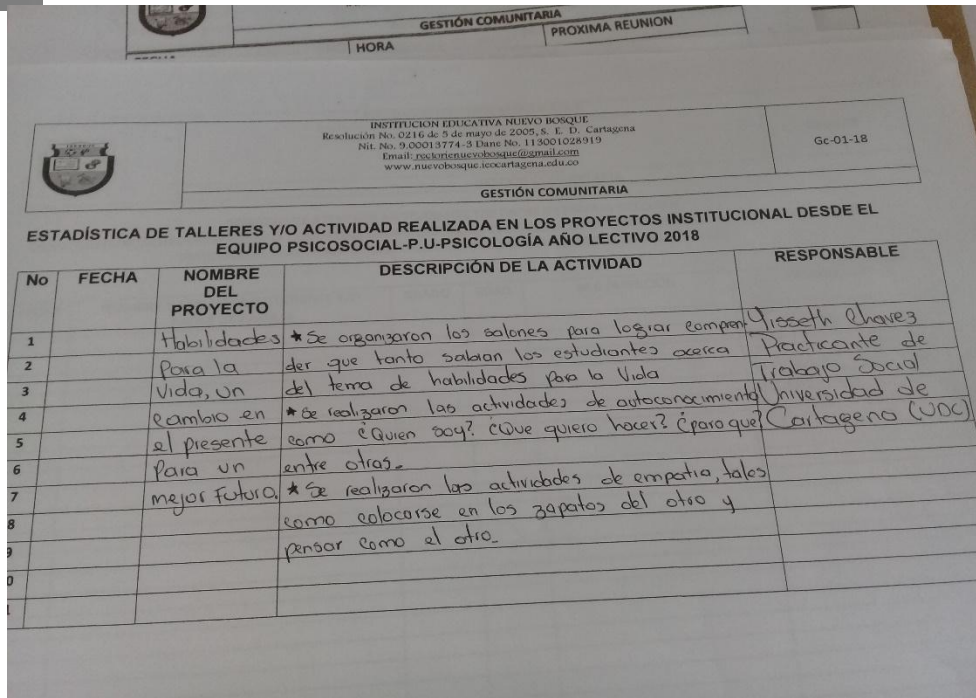 GESTIÓN COMUNITARIA
HORA
PROXIMA REUNION
INSTITUCION EDUCATIVA NUEVO BOSQUE
Resolución No. 0216 de 5 de mayo de 2005, S. E. D. Cartagena
Nit. No. 9.00013774-3 Dane No. 113001028919
Email: rectorienuevobosque@gmail.com
www.nuevobosque.iecartagena.edu.co
Gc-01-18
GESTIÓN COMUNITARIA
ESTADÍSTICA DE TALLERES Y/O ACTIVIDAD REALIZADA EN LOS PROYECTOS INSTITUCIONAL DESDE EL
EQUIPO PSICOSOCIAL-P.U-PSICOLOGÍA AÑO LECTIVO 2018
No FECHA NOMBRE DEL PROYECTO DESCRIPCIÓN DE LA ACTIVIDAD RESPONSABLE
1 Habilidades * Se organizaron los salones para lograr compren Yisseth Chavez
2 Para la der que tanto sabian los estudiantes acerca Practicante de
3 Vida, un del tema de habilidades para la Vida Trabajo Social
4 cambio en * Se realizaron las actividades de autoconocimiento Universidad de
5 el presente como ¿Quien soy? ¿Que quiero hacer? ¿para que? Cartagena (UDC)
6 Para un entre otras.
7 mejor Futuro. * Se realizaron las actividades de empatia, tales
8 como colocarse en los zapatos del otro y
9 pensar como el otro.
0
1